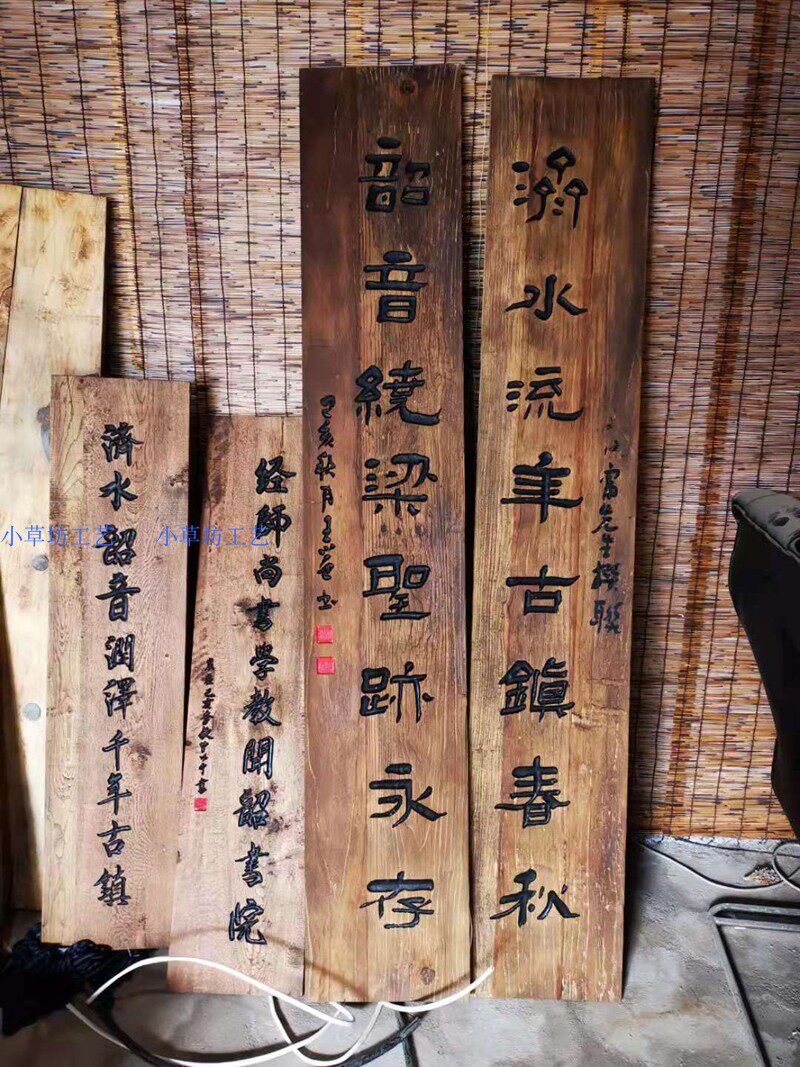 濟水流年古鎮春秋
富先生撰聯
韶音繞梁聖跡永存
己亥秋月王书
经師尚書学教聞韶書院
濟水韶音潤澤千年古鎮
小草坊工艺
小草坊工艺